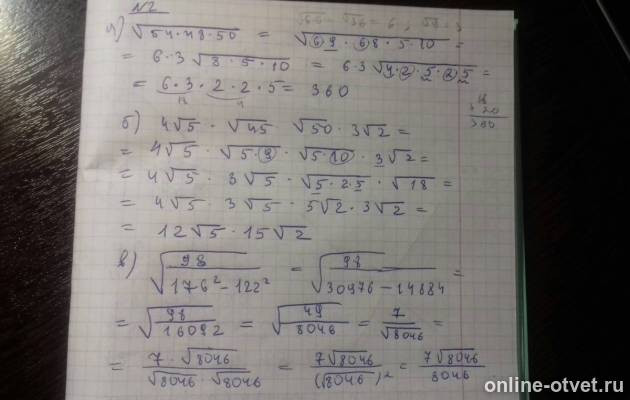 №2
а) √54·48·50 = √6·9·6·8·5·10 =
= 6·3 √8·5·10 = 6·3 √4·2·5·2·5 =
= 6·3·2·2·5 = 360
б) 4√5 · √45 √50 · 3√2 =
= 4√5 · √5·9 · √5·10 · 3√2 =
= 4√5 · 3√5 · √5·2·5 · √18 =
= 4√5 · 3√5 · 5√2 · 3√2 =
= 12√5 · 15√2
в) √98/176²-122² = √98/30976-14884 =
= √98/16092 = √49/8046 = 7/√8046 =
= 7·√8046/√8046·√8046 = 7√8046/(√8046)² = 7√8046/8046
online-otvet.ru